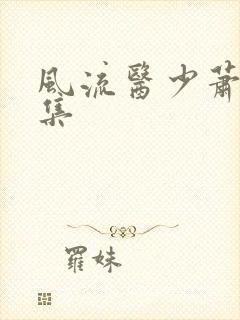 風流醫少蕭
集
羅妹